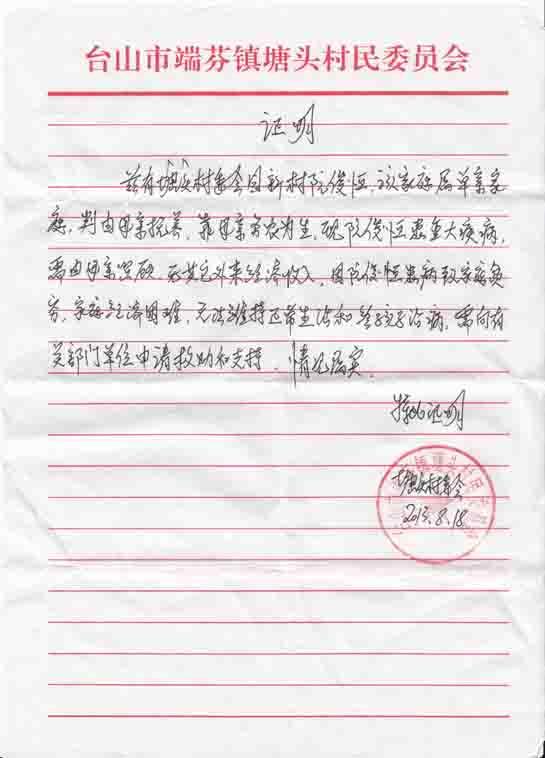 台山市端芬镇塘头村民委员会
证明
兹有塘头村委会自新村阮俊恒，该家庭属单亲家
庭，判由母亲抚养，靠母亲务农为生，现阮俊恒患重大疾病，
需由母亲照顾，无其它外来经济收入，因阮俊恒患病致家庭负
穷，家庭经济困难，无法维持正常生活和孩子治病，需向有
关部门单位申请救助和支持，情况属实。
特此证明
塘头村委会
2013.8.18